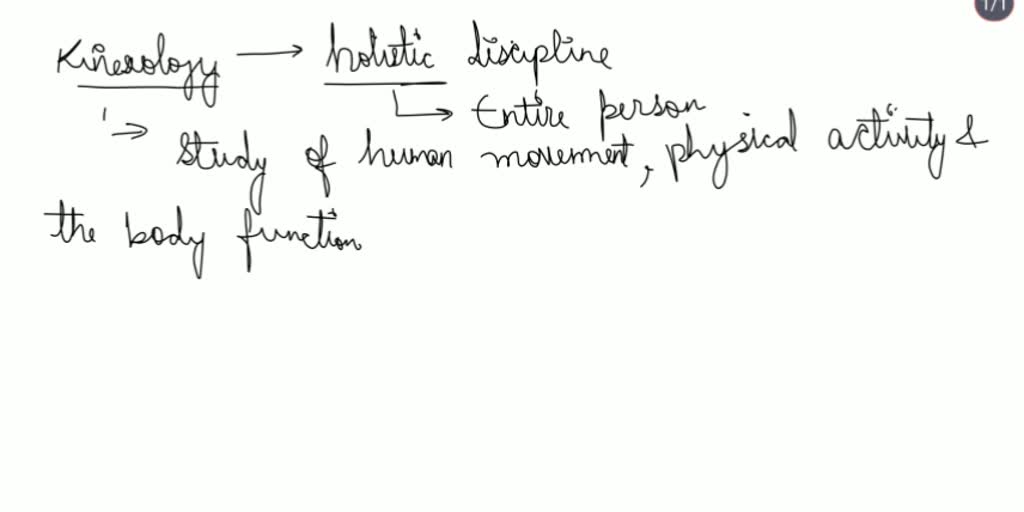 Kinesiology → holistic discipline
↳ Entire person
⇒ Study of human movement, physical activity &
the body function
1/1